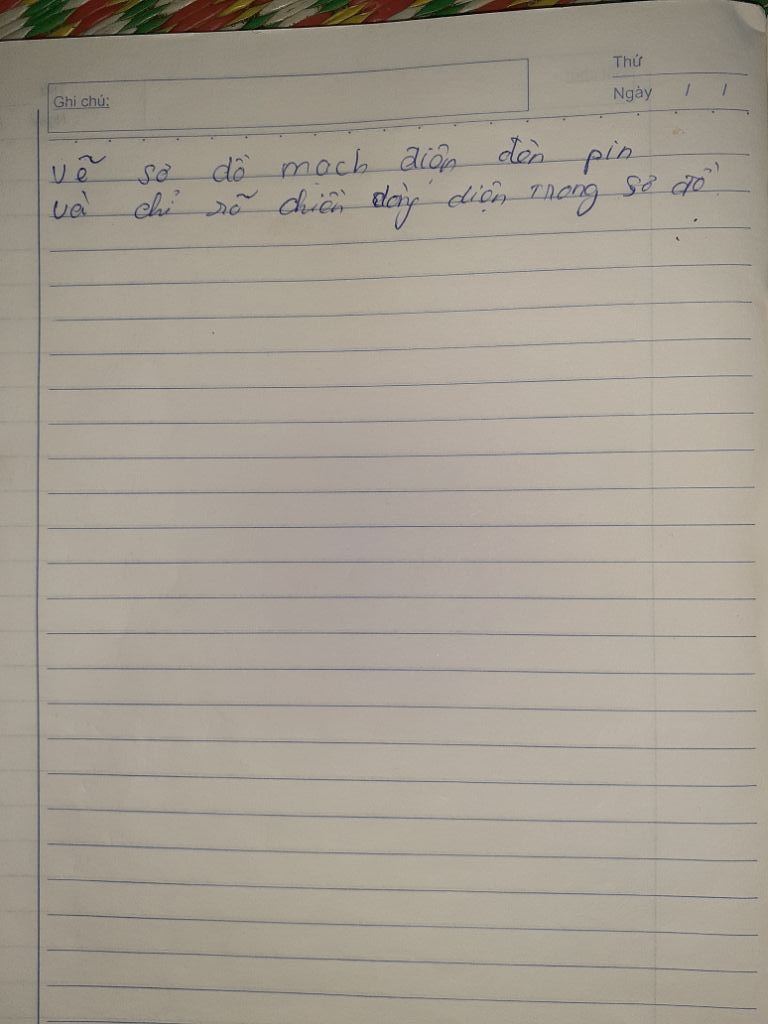 Thứ
Ghi chú:
Ngày / /
vẽ sơ đồ mạch điện đèn pin
và chỉ rõ chiều dòng điện trong sơ đồ